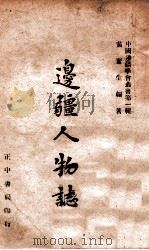 中國邊疆學會叢書第一輯
黃奮生編著
邊疆人物誌
正中書局印行